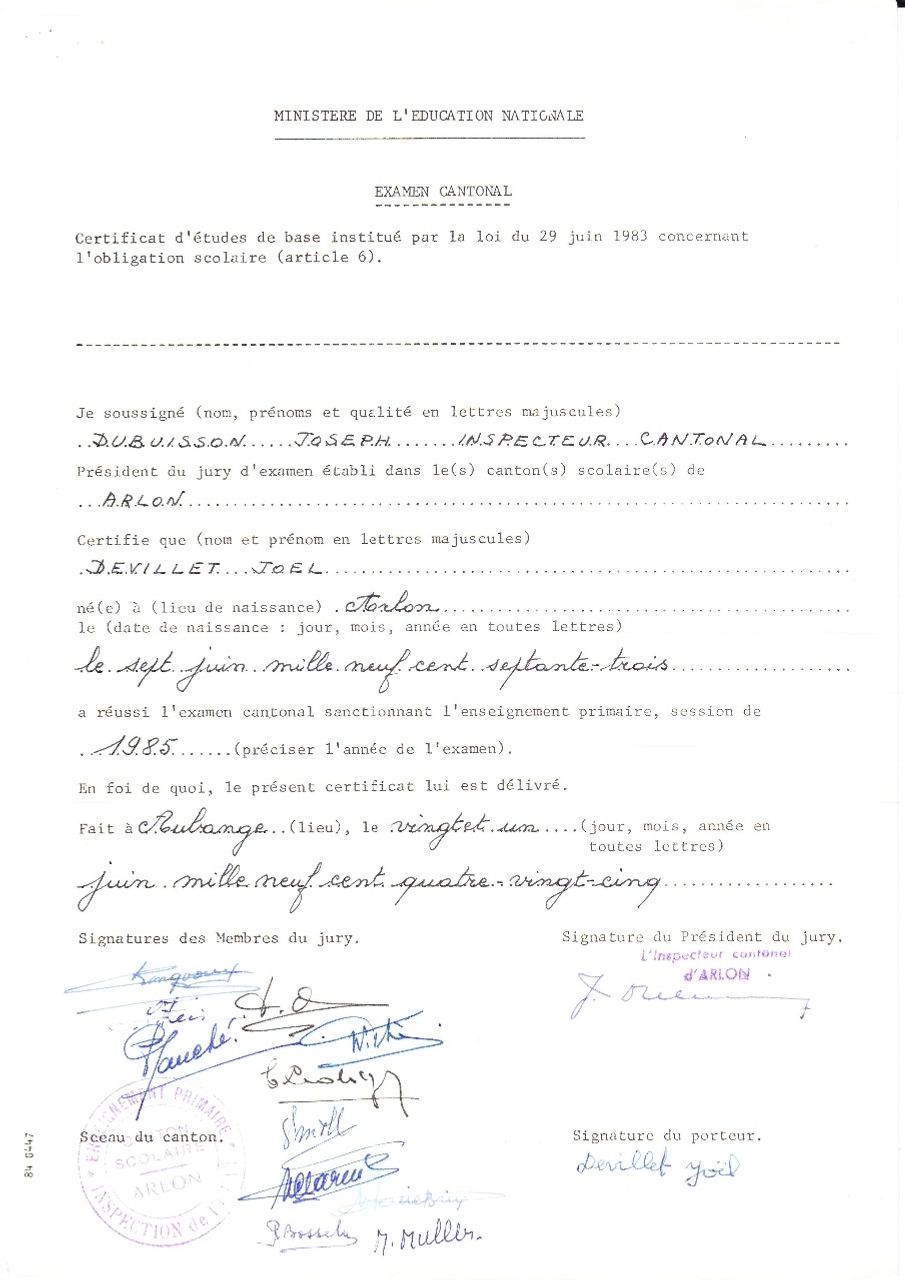 MINISTERE DE L'EDUCATION NATIONALE
EXAMEN CANTONAL
Certificat d'études de base institué par la loi du 29 juin 1983 concernant
l'obligation scolaire (article 6).
Je soussigné (nom, prénoms et qualité en lettres majuscules)
DUBUISSON JOSEPH INSPECTEUR CANTONAL
Président du jury d'examen établi dans le(s) canton(s) scolaire(s) de
ARLON
Certifie que (nom et prénom en lettres majuscules)
DEVILLET JOEL
né(e) à (lieu de naissance) Arlon
le (date de naissance : jour, mois, année en toutes lettres)
le sept juin mille neuf cent septante-trois
a réussi l'examen cantonal sanctionnant l'enseignement primaire, session de
1985 (préciser l'année de l'examen).
En foi de quoi, le présent certificat lui est délivré.
Fait à Aubange (lieu), le vingt et un (jour, mois, année en
toutes lettres)
juin mille neuf cent quatre-vingt-cinq
Signatures des Membres du jury.
Signature du Président du jury.
L'Inspecteur cantonal
d'ARLON
Planché
Sceau du canton.
ENSEIGNEMENT PRIMAIRE
CANTON
SCOLAIRE
ARLON
INSPECTION de l'
Signature du porteur.
Devillet Joël
M. Muller.
84 0447